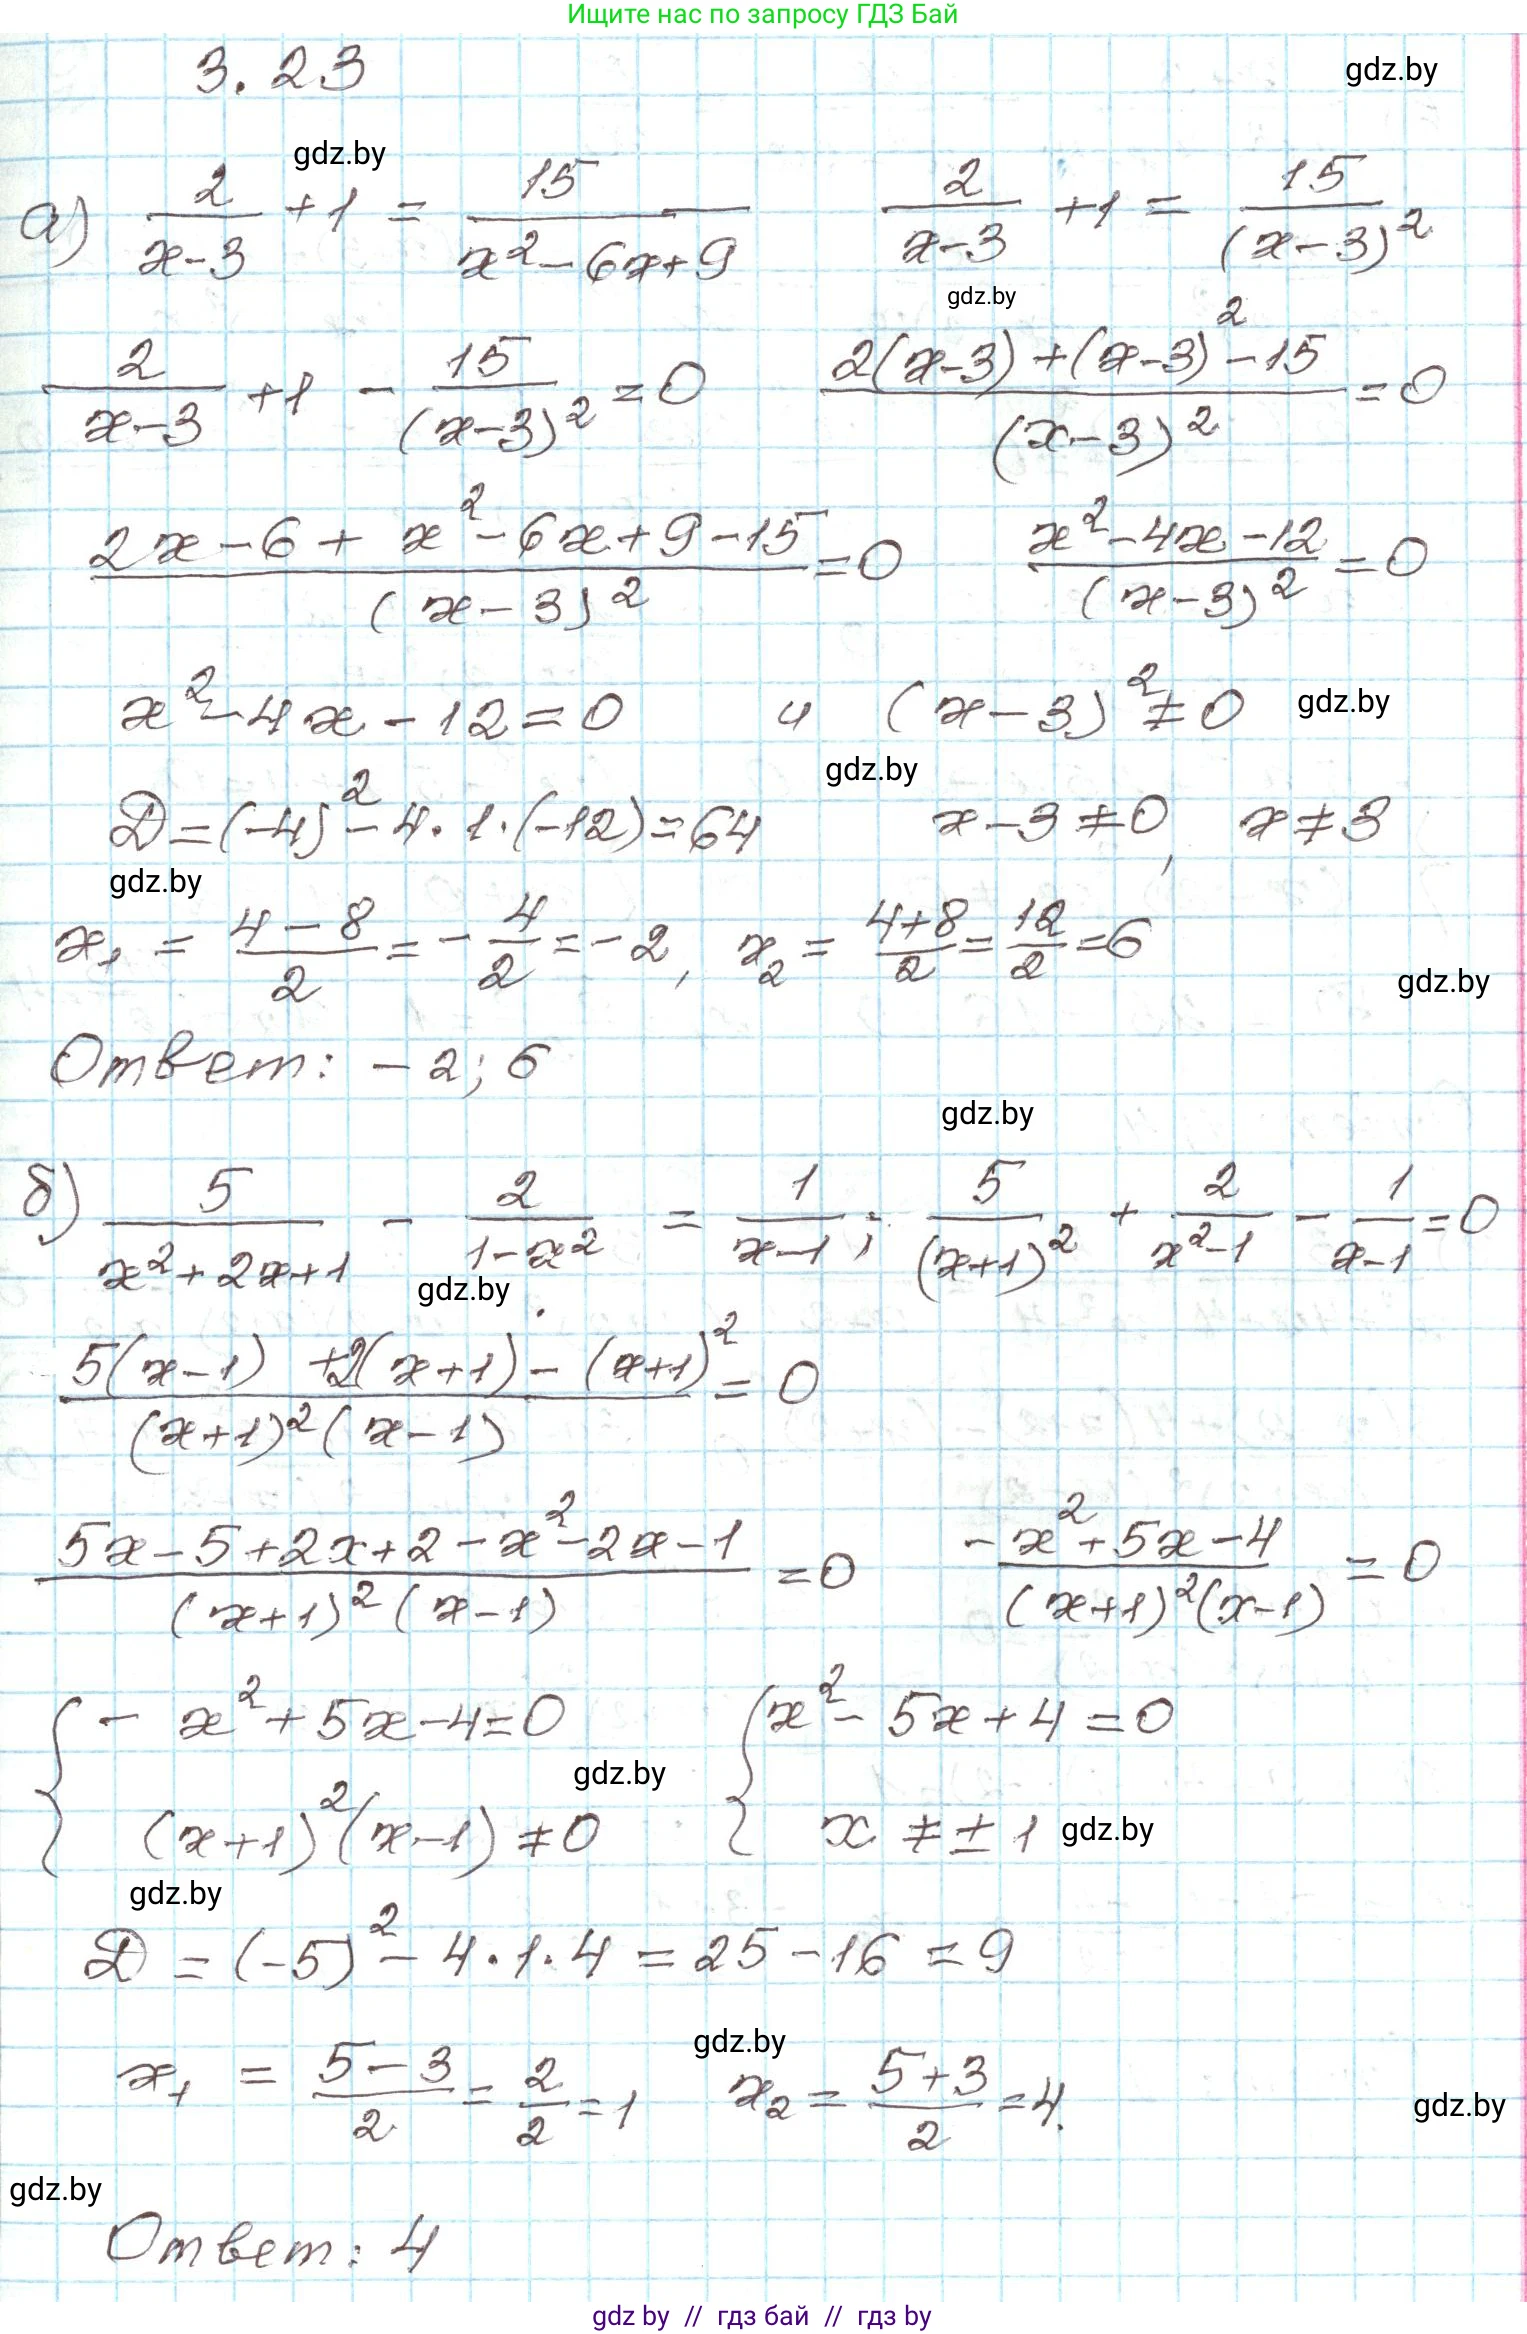 Ищите нас по запросу ГДЗ Бай
3.23
gdz.by
gdz.by
а) 2/(x-3) + 1 = 15/(x² - 6x + 9)    2/(x-3) + 1 = 15/(x-3)²
gdz.by
2/(x-3) + 1 - 15/(x-3)² = 0    (2(x-3) + (x-3)² - 15)/(x-3)² = 0
(2x - 6 + x² - 6x + 9 - 15)/(x-3)² = 0    (x² - 4x - 12)/(x-3)² = 0
x² - 4x - 12 = 0  и  (x-3)² ≠ 0
gdz.by
gdz.by
D = (-4)² - 4·1·(-12) = 64    x - 3 ≠ 0, x ≠ 3
gdz.by
x₁ = (4-8)/2 = -4/2 = -2, x₂ = (4+8)/2 = 12/2 = 6
gdz.by
Ответ: -2; 6
gdz.by
б) 5/(x² + 2x + 1) - 2/(1-x²) = 1/(x-1); 5/(x+1)² + 2/(x²-1) - 1/(x-1) = 0
gdz.by
(5(x-1) + 2(x+1) - (x+1)²)/((x+1)²(x-1)) = 0
(5x - 5 + 2x + 2 - x² - 2x - 1)/((x+1)²(x-1)) = 0    (-x² + 5x - 4)/((x+1)²(x-1)) = 0
{ -x² + 5x - 4 = 0    { x² - 5x + 4 = 0
gdz.by
(x+1)²(x-1) ≠ 0    x ≠ ±1
gdz.by
gdz.by
D = (-5)² - 4·1·4 = 25 - 16 = 9
gdz.by
x₁ = (5-3)/2 = 2/2 = 1    x₂ = (5+3)/2 = 4.
gdz.by
gdz.by
Ответ: 4
gdz by // гдз бай // гдз by